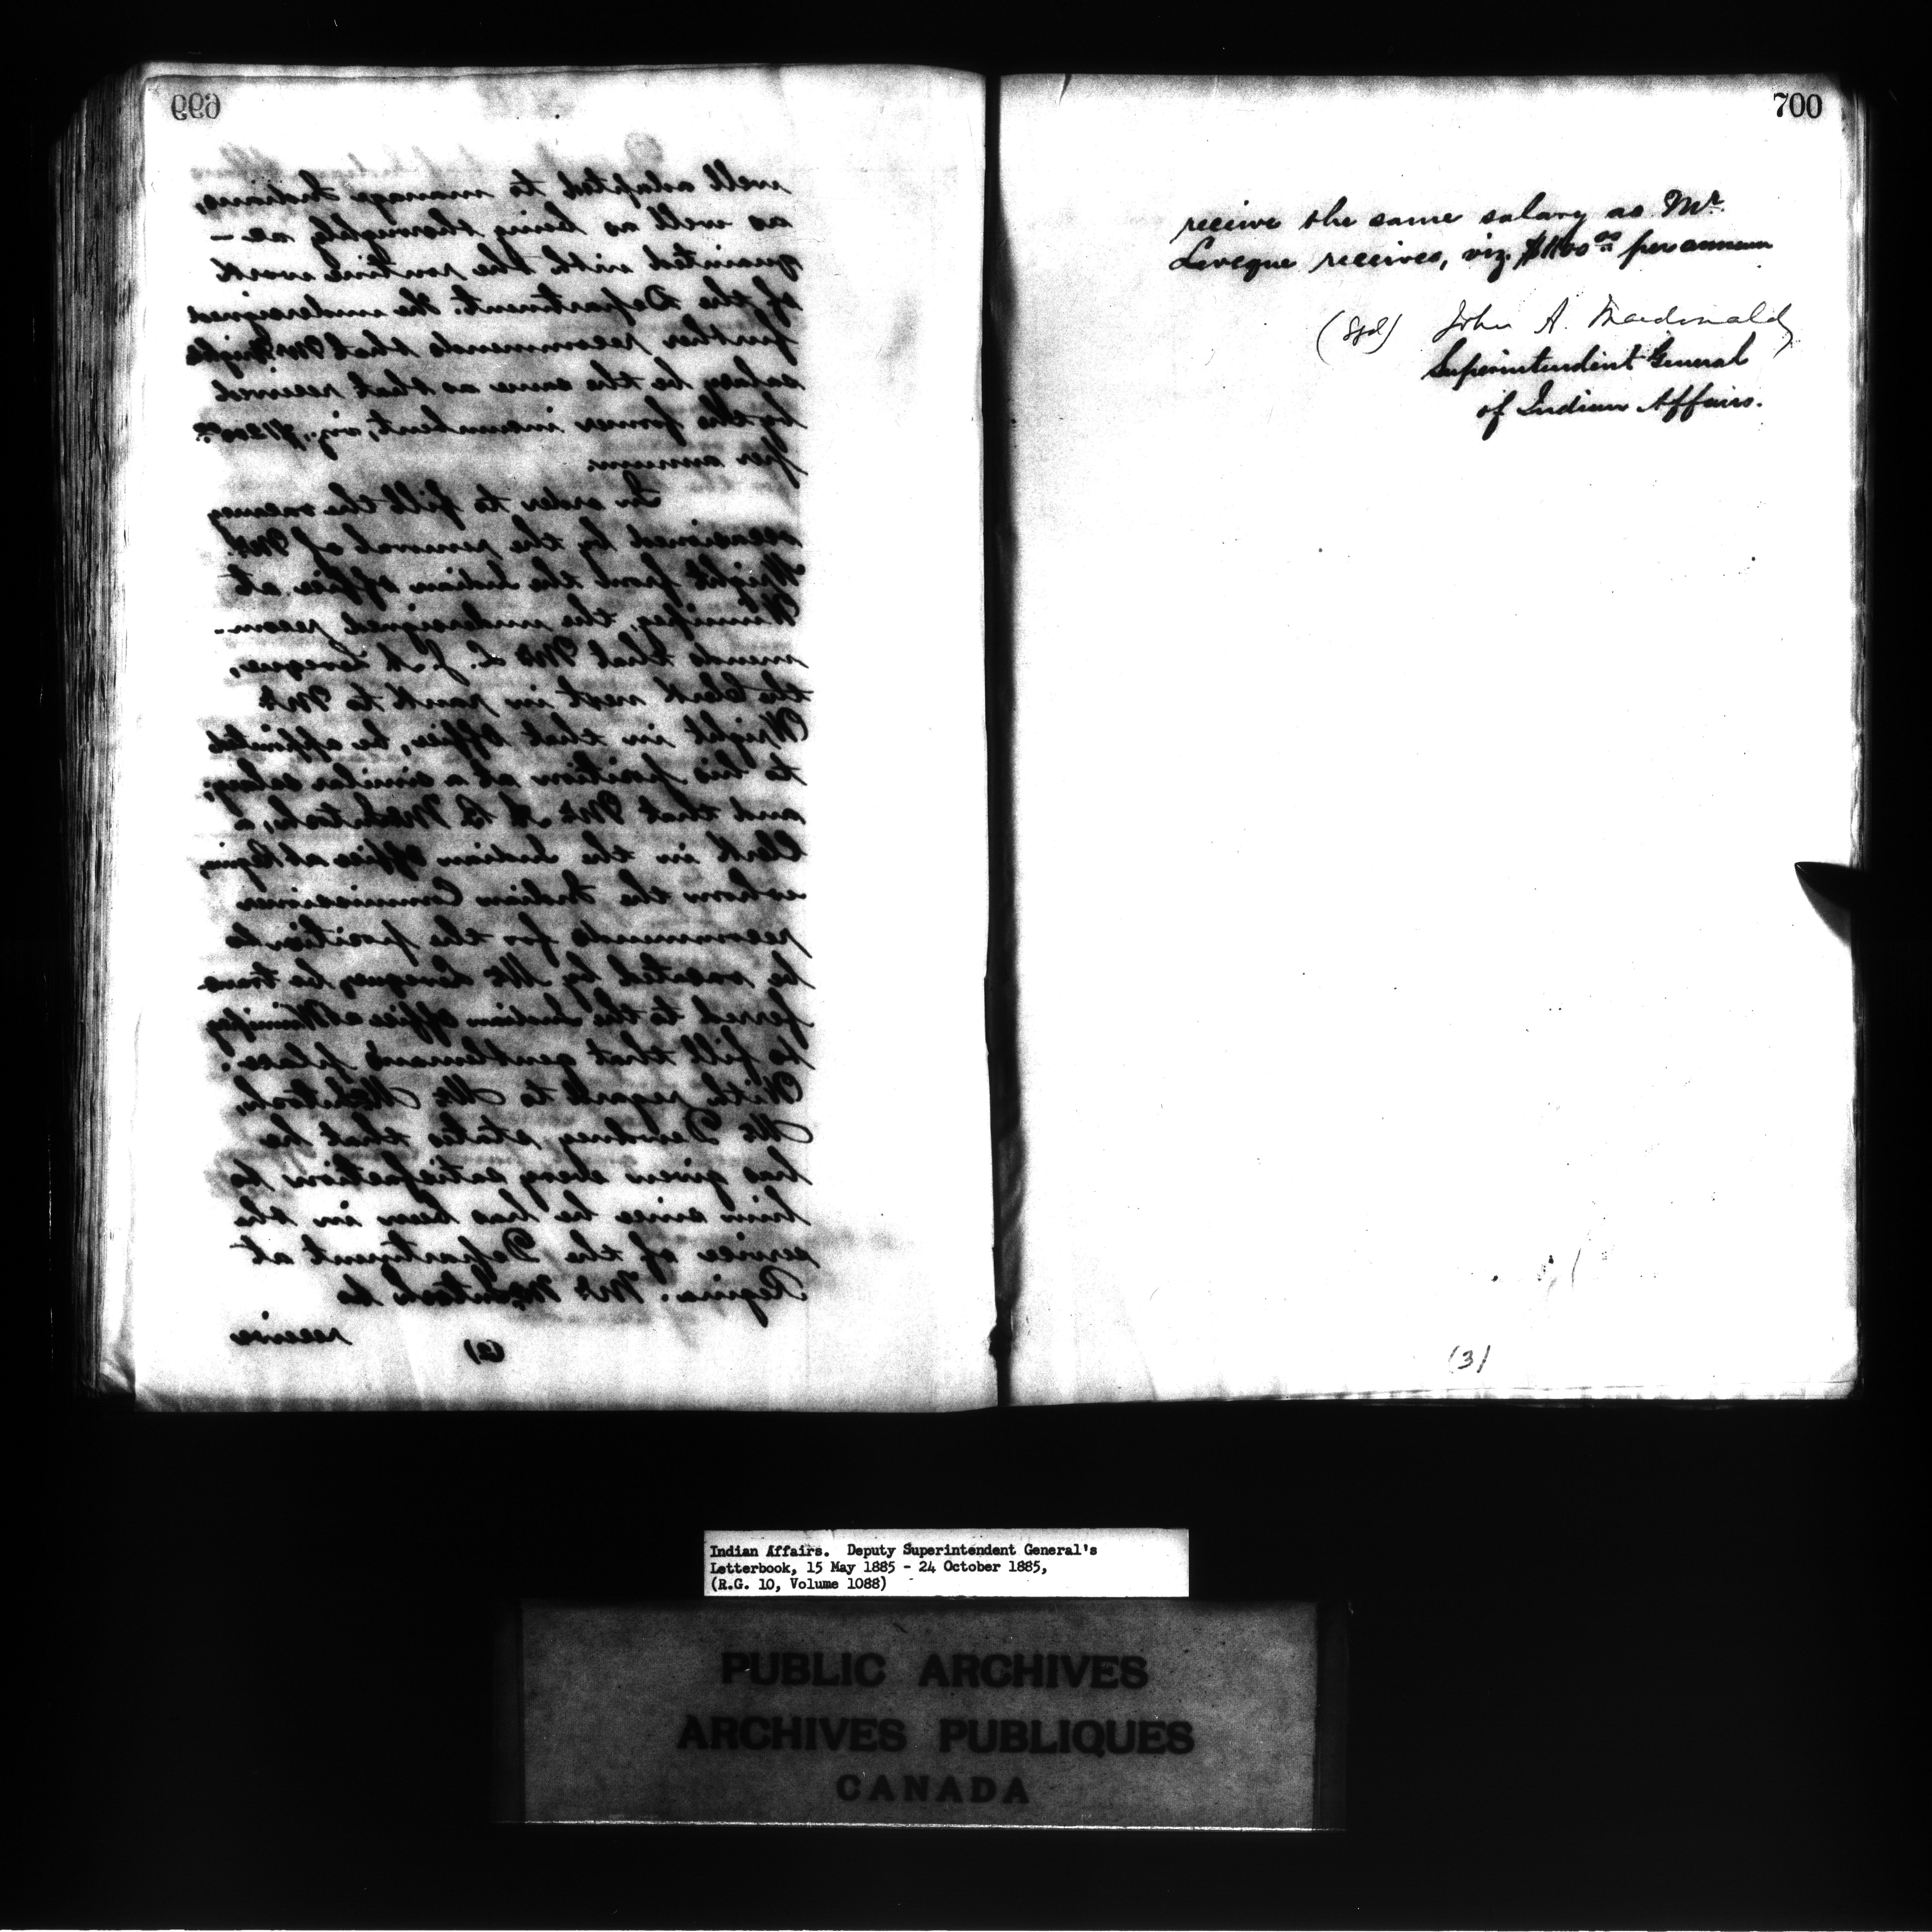 699
well adapted to manage Indians,
as well as being thoroughly ac-
quainted with the routine work
of the Department. The undersigned
further recommends that Mr Wright's
salary be the same as that received
by the former incumbent, viz., $1200.00
per annum.
In order to fill the vacancy
occasioned by the removal of Mr.
Wright from the Indian office at
Winnipeg, the undersigned recom-
mends that Mr L. J. A. Leveque,
the Clerk next in rank to Mr
Wright in that office, be appointed
to his position at a similar salary;
and that Mr A B McIntosh, a
Clerk in the Indian Office at Regina,
whom the Indian Commissioner
recommends for the position to
be vacated by Mr Leveque, be trans-
ferred to the Indian Office at Winnipeg
to fill that gentleman's place.
With regard to Mr McIntosh,
Mr Dewdney states that he
has given every satisfaction to
him since he has been in the
service of the Department at
Regina. Mr McIntosh to
receive
(2)
700
receive the same salary as Mr.
Leveque receives, viz. $1100.00 per annum
(Sgd) John A. Macdonald
Superintendent General
of Indian Affairs.
(3)
Indian Affairs. Deputy Superintendent General's
Letterbook, 15 May 1885 - 24 October 1885,
(R.G. 10, Volume 1088)
PUBLIC ARCHIVES
ARCHIVES PUBLIQUES
CANADA